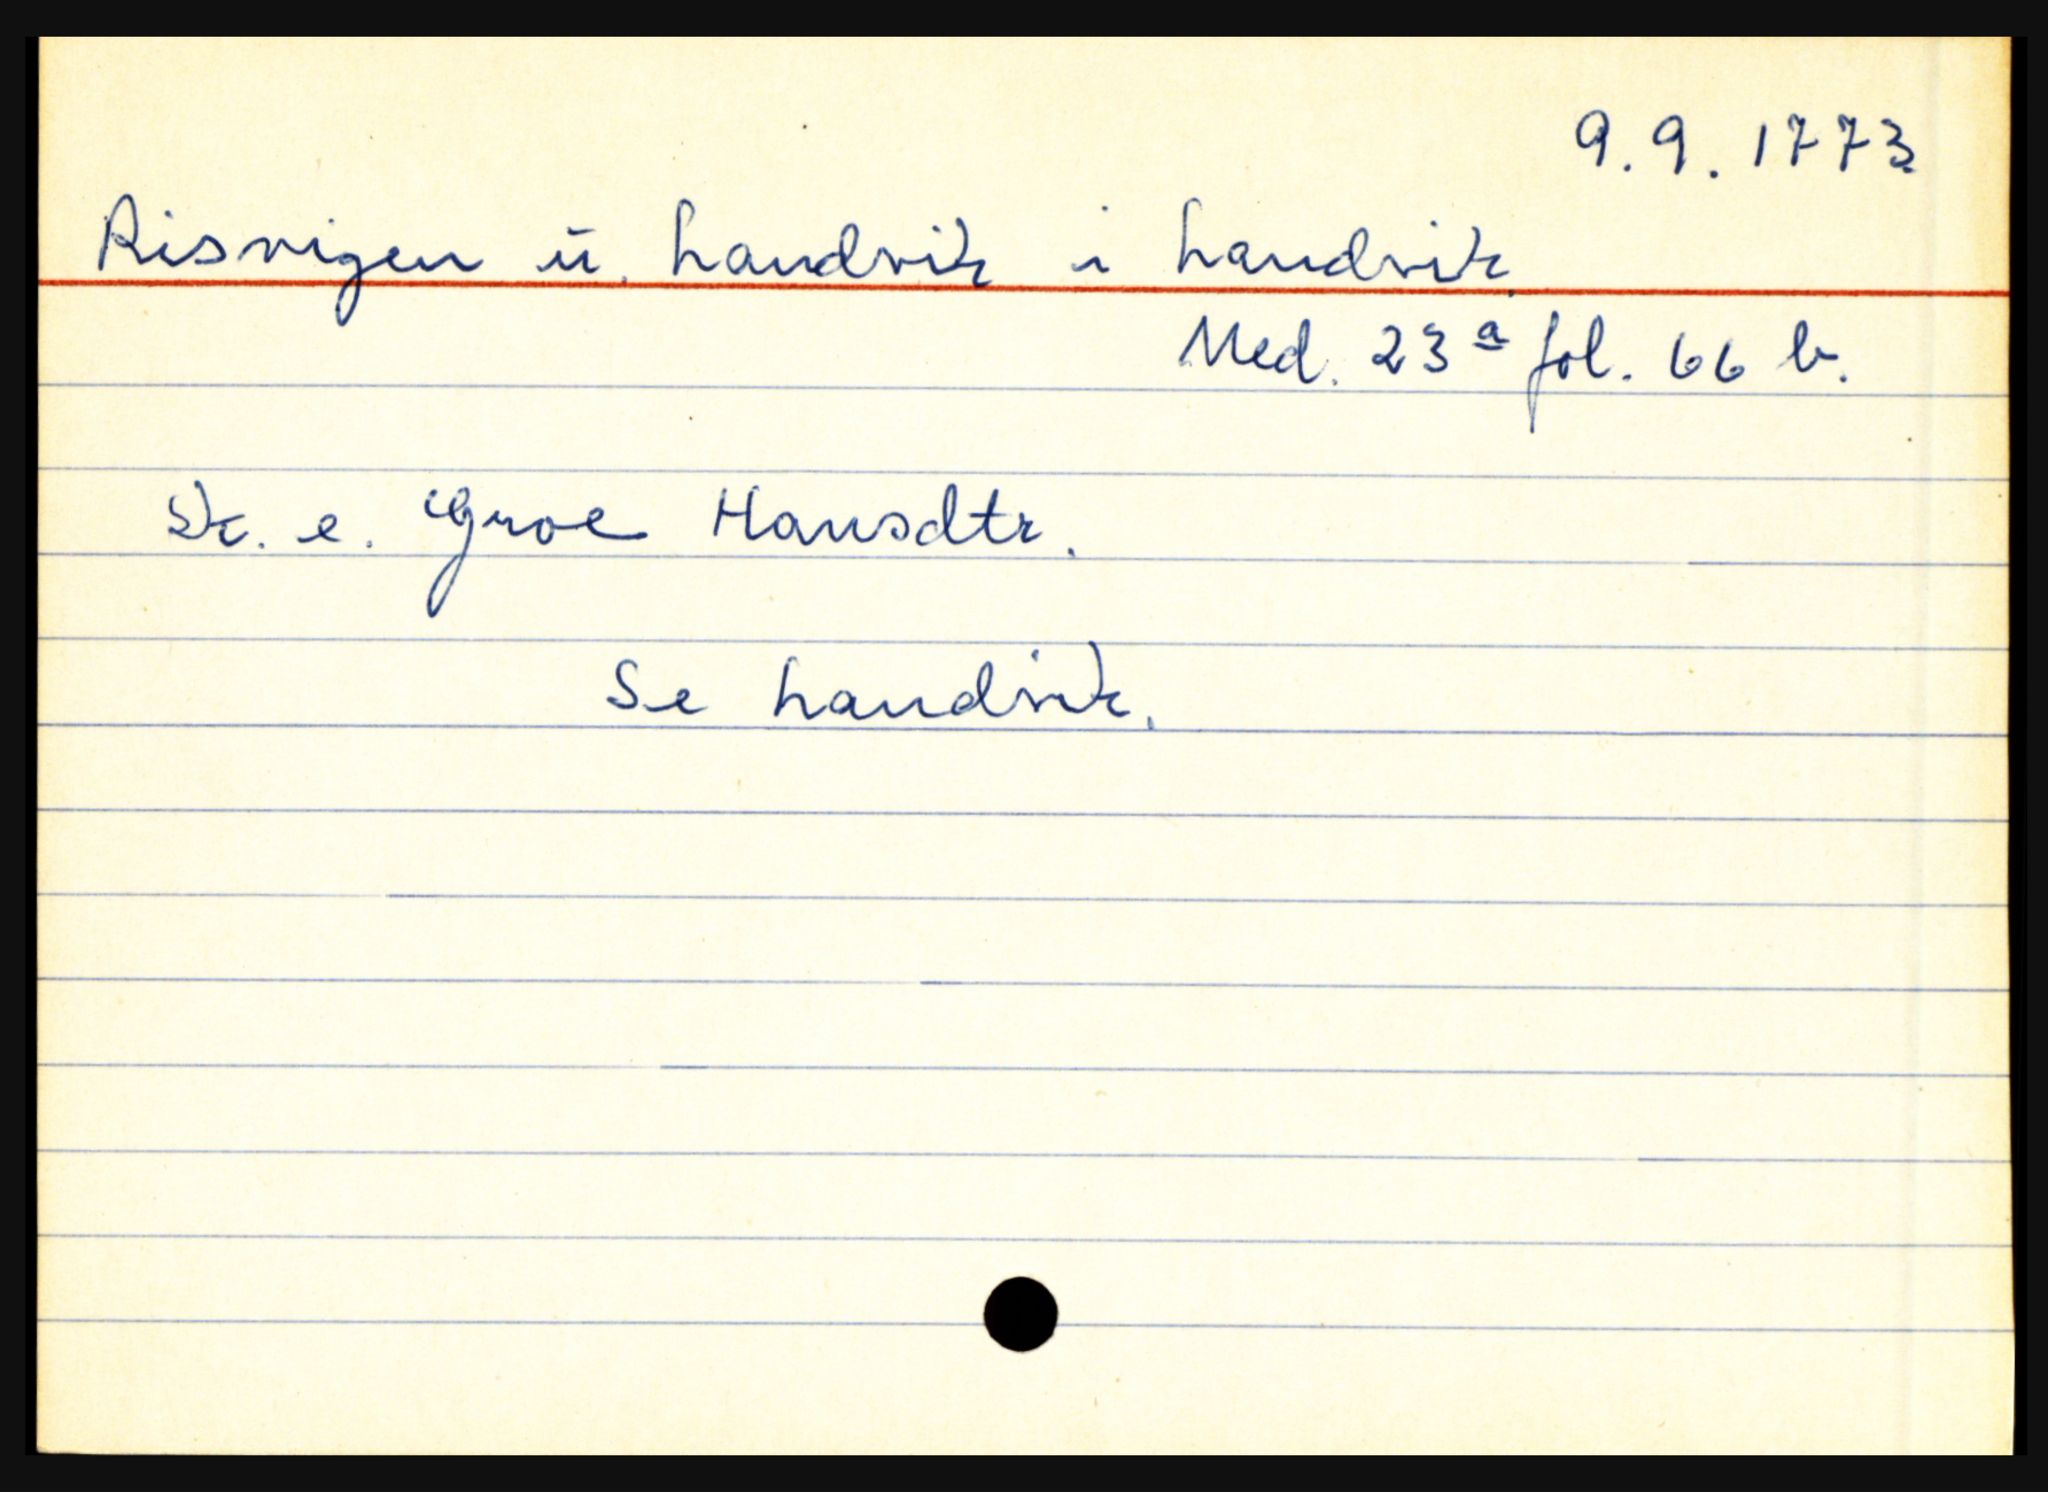 9.9.1773
Risvigen u. Landvik i Landvik.
Ned. 23ª fol. 66 b.
Sk. e. Groe Hansdtr.
Se Landvik.